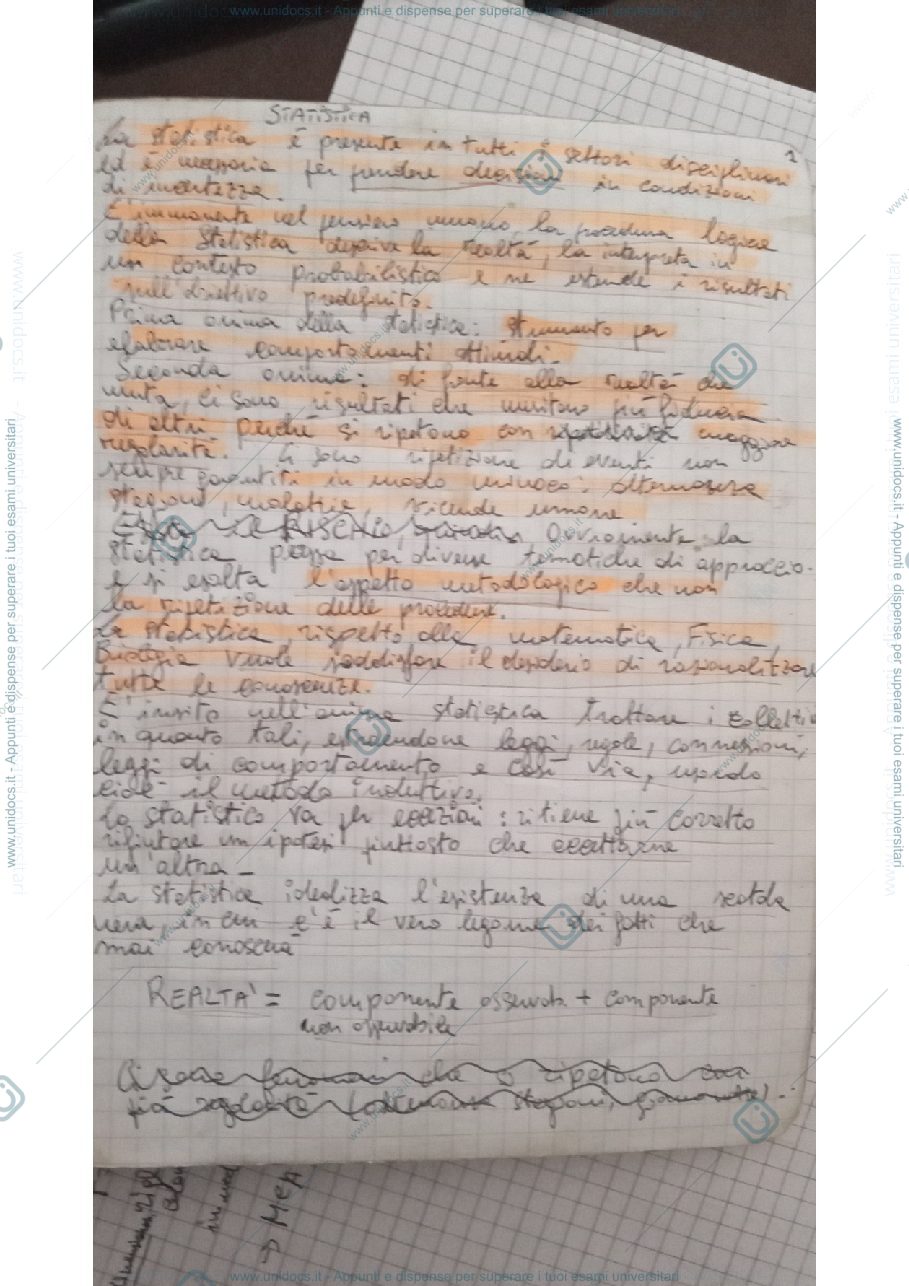 www.unidocs.it - Appunti e dispense per superare i tuoi esami universitari
STATISTICA
1
La statistica è presente in tutti i settori disciplinari
ed è necessaria per prendere decisioni in condizioni
di incertezza.
E' immanente nel pensiero umano, la procedura logica
della Statistica descrive la realtà, la interpreta in
un contesto probabilistico e ne estende i risultati
sull'obiettivo predefinito.
Prima anima della statistica: strumento per
elaborare comportamenti ottimali.
Seconda anima: di fronte alla realtà che
muta, ci sono risultati che meritano più fiducia
di altri perché si ripetono con maggiore
regolarità. Ci sono ripetizione di eventi non
sempre garantiti in modo univoco: alternanza
stagioni, malattie, vicende umane
Ovviamente la
statistica passa per diverse tematiche di approccio
e si esalta l'aspetto metodologico che non
la ripetizione delle procedure.
La statistica, rispetto alla matematica, Fisica,
Biologia vuole soddisfare il desiderio di razionalizzare
tutte le conoscenze.
E' insito nell'anima statistica trattare i collettivi
in quanto tali, estraendone leggi, regole, connessioni,
leggi di comportamento e così via, usando
cioè il metodo induttivo.
La statistica va per eccezioni: ritiene più corretto
rifiutare un ipotesi piuttosto che accettarne
un'altra -
La statistica idealizza l'esistenza di una realtà
vera, in cui c'è il vero legame dei fatti che
mai conoscerà
REALTA' = componente osservab. + componente
non osservabile
Ci sono fenomeni che si ripetono con
più regolarità (alternanza stagioni, giornate)
www.unidocs.it - Appunti e dispense per superare i tuoi esami universitari